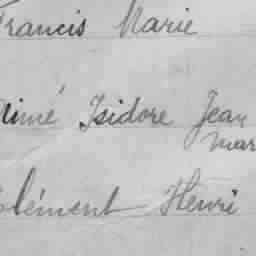 Francis Marie
Aimé Isidore Jean
Mar
Clément Henri